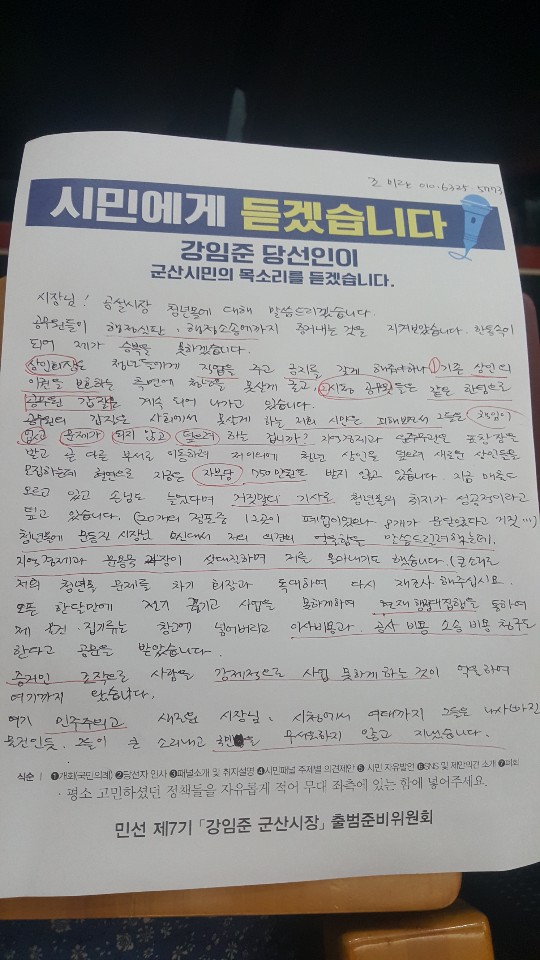 조 미란 010-6325-5773
시민에게 듣겠습니다
강임준 당선인이
군산시민의 목소리를 듣겠습니다.
시장님! 공설시장 청년몰에 대해 말씀드리겠습니다.
공무원들이 행정심판, 행정소송에까지 하는 것을 지켜보았습니다. 한통속이
되어 제가 승복을 못하겠습니다.
상인회장은 청년들에게 직업을 주고 긍지를 갖게 해줘야하나 ① 기존 상인의
이권을 보호하는 측면에 청년을 못살게 굴고, ② 시청 공무원들은 같은 한팀으로
공무원 갑질은 계속 되어 나가고 있습니다.
공무원의 갑질은 사회에서 못살게 하는 저의 시안은 피해보면서 그들은 책임이
없고 문제가 되지 않고 덮으려 하는 겁니까? 지역경제과 담당은 표창장을
받고 또 다른 부서로 이동하며 저이외에 청년 상인을 새로운 상인들을
모집하는데 현연으로 지급은 자부담 750만원도 받지 않고 있습니다. 지금 매출도
오르고 있고 손님도 늘었다며 거짓말의 기사로 청년몰의 취지가 성공적이라고
덮고 있습니다. (20개의 점포중 12곳이 폐업이었으나 8개가 문닫았다고 거짓!!!)
청년몰에 문동신 시장님 면전에서 저의 의견의 억울함을 말씀드리려했는데,
지역경제과 문용묵 과장이 삿대질하며 저를 몰아내기도 했습니다. (큰소리로
저의 청년몰 문제를 차기 회장과 독대하여 다시 재조사 해주십시요.
오픈 한달만에 전기 끊기고 사업을 못하게하여 현재 행정대집행을 통하여
제 물건·집기류는 창고에 넣어버리고 이사비용과 공사 비용 소송 비용 청구도
한다고 공문을 받았습니다.
증거인 조작으로 사람을 강제적으로 사업 못하게 하는 것이 억울하여
여기까지 왔습니다.
여기 민주주의고 새로운 시장님, 시청에서 여태까지 그들은 나서본자
물건인듯. 그들이 큰 소리내고 국민을 무서워하지 않고 지냈습니다.
식순 | ❶개회(국민의례) ❷당선자 인사 ❸패널소개 및 취지설명 ❹시민패널 주제별 의견제안 ❺ 시민 자유발언 ❻SNS 및 제안의견 소개 ❼폐회
· 평소 고민하셨던 정책들을 자유롭게 적어 무대 좌측에 있는 함에 넣어주세요.
민선 제7기 「강임준 군산시장」 출범준비위원회